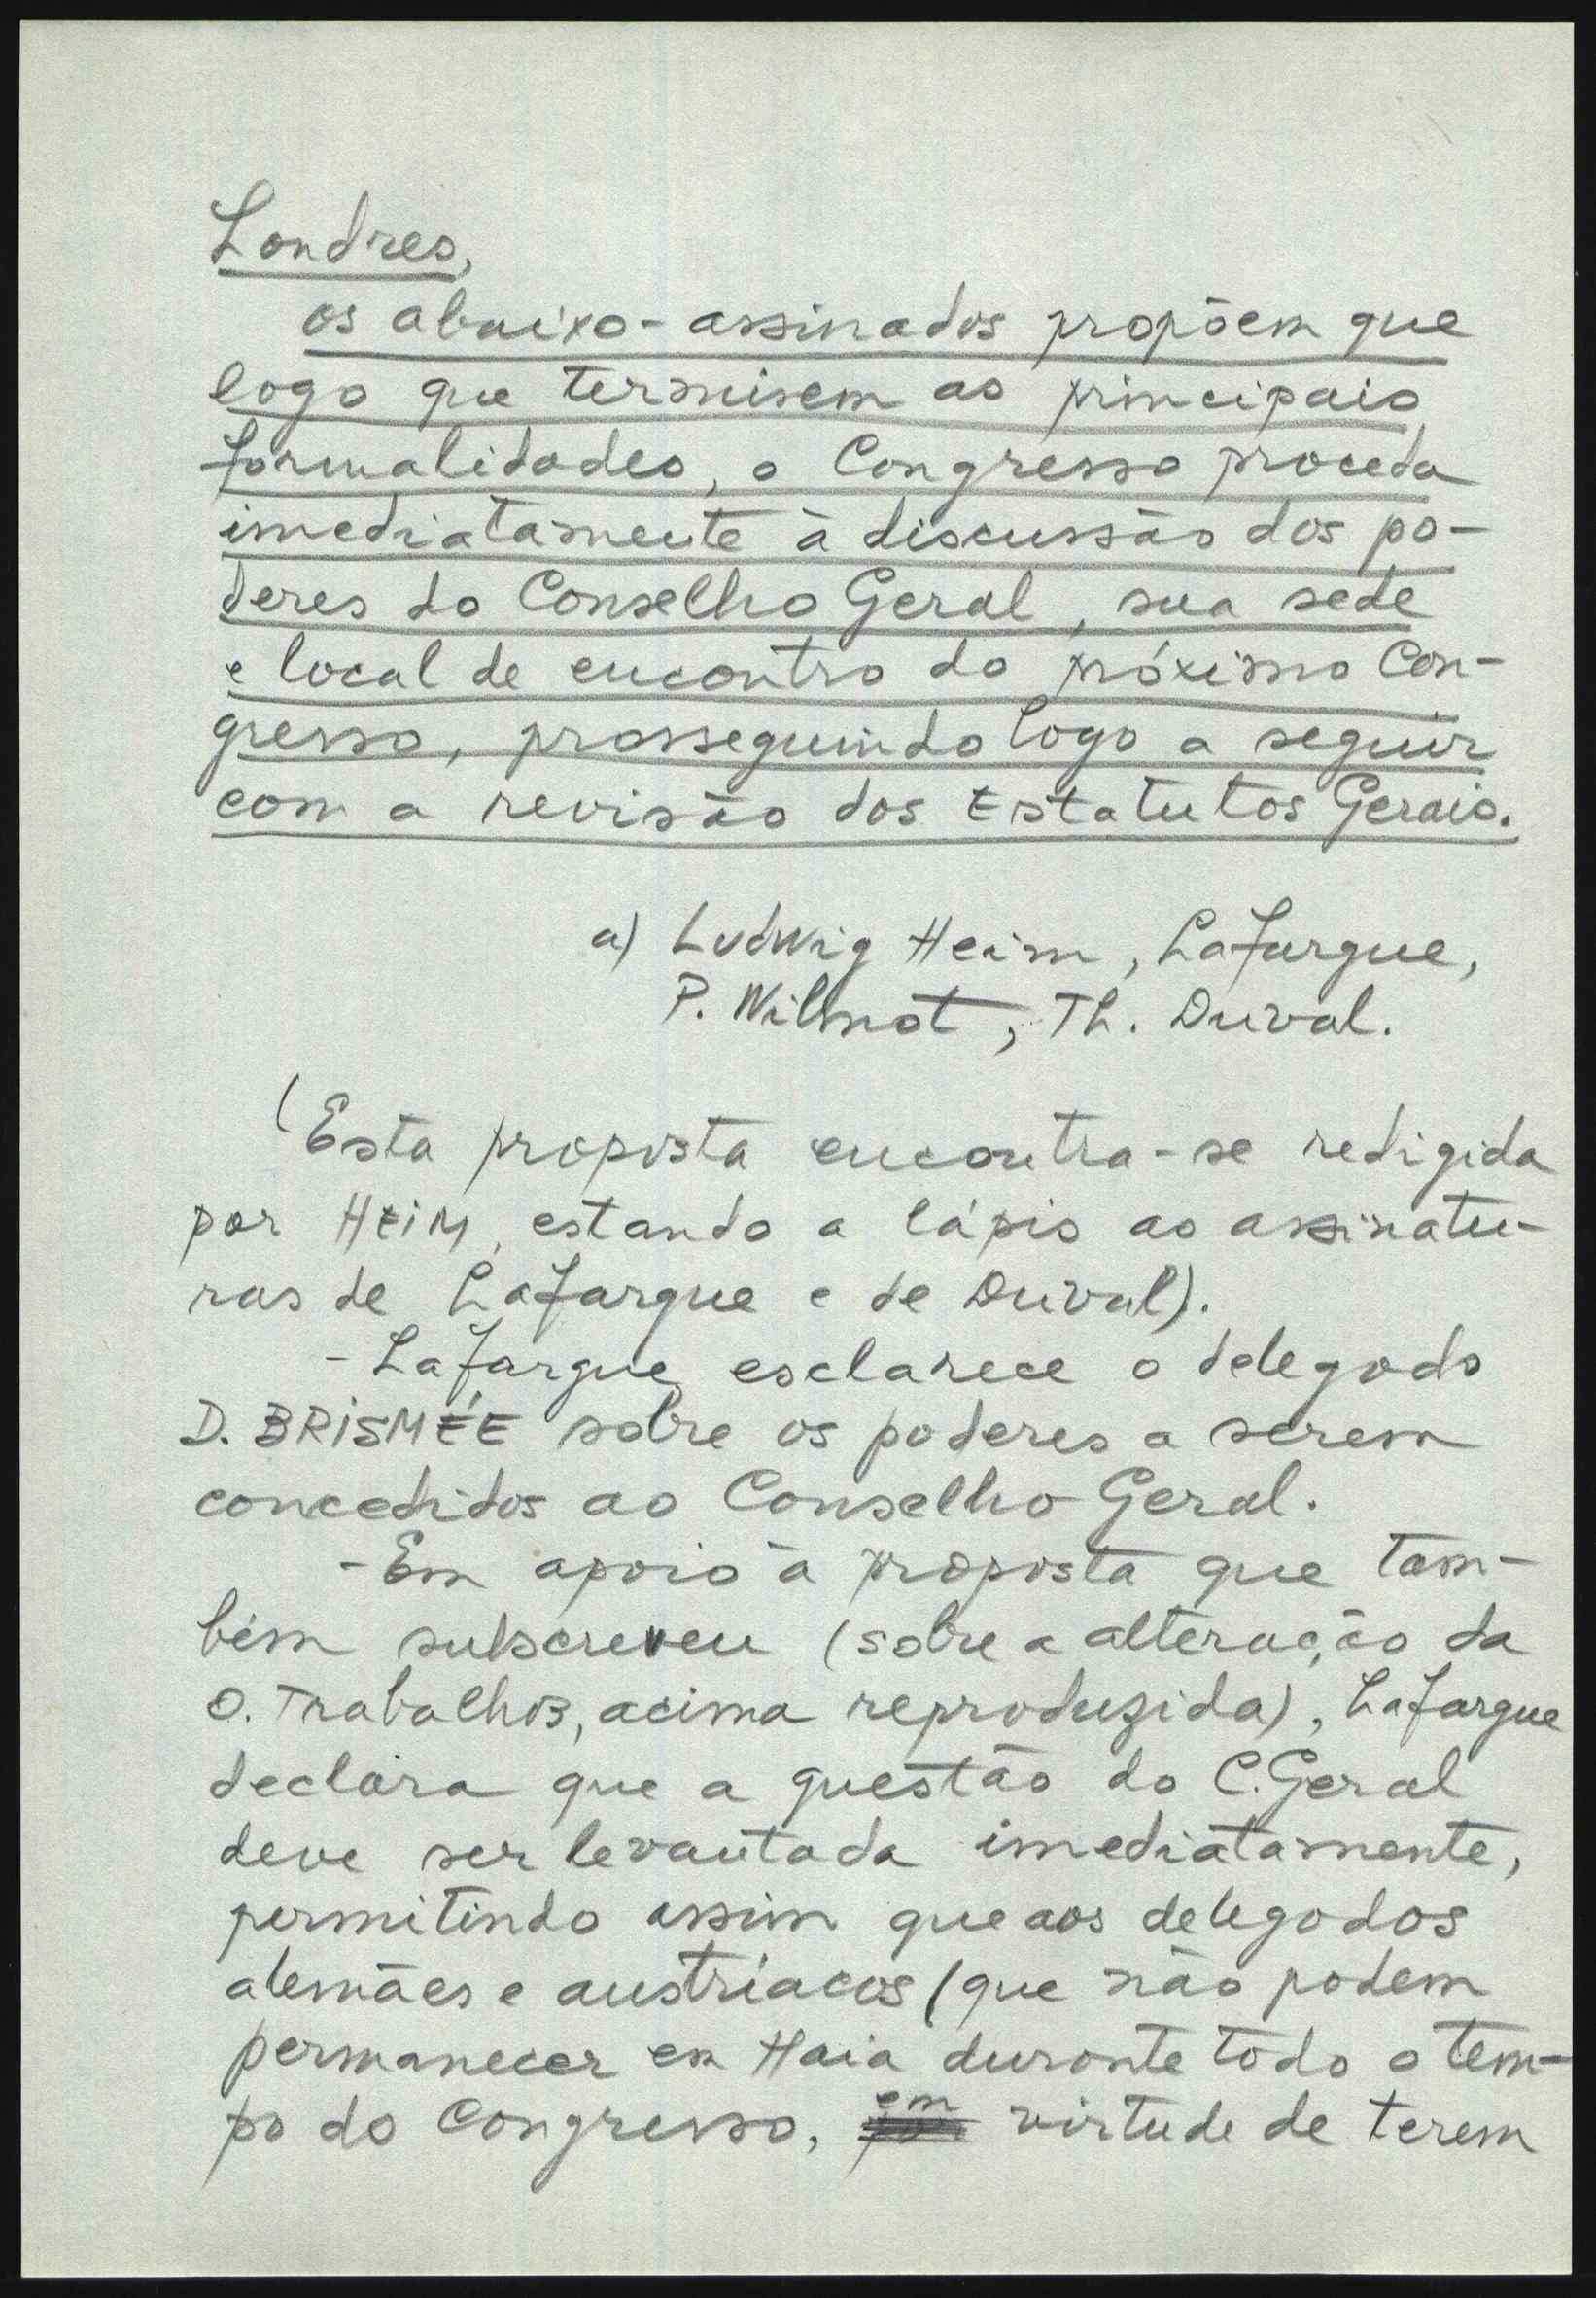 Londres,
os abaixo-assinados propõem que
logo que terminem as principais
formalidades, o Congresso proceda
imediatamente à discussão dos po-
deres do Conselho Geral, sua sede
e local de encontro do próximo Con-
gresso, prosseguindo logo a seguir
com a revisão dos Estatutos Gerais.
a) Ludwig Heim, Lafargue,
P. Wilmot, Th. Duval.
(Esta proposta encontra-se redigida
por HEIM, estando a lápis as assinatu-
ras de Lafargue e de Duval).
- Lafargue esclarece o delegado
D. BRISMÉE sobre os poderes a serem
concedidos ao Conselho Geral.
- Em apoio à proposta que tam-
bém subscreveu (sobre a alteração da
O. Trabalhos, acima reproduzida), Lafargue
declara que a questão do C. Geral
deve ser levantada imediatamente,
permitindo assim que aos delegados
alemães e austríacos (que não podem
permanecer em Haia durante todo o tem-
po do Congresso, em virtude de terem